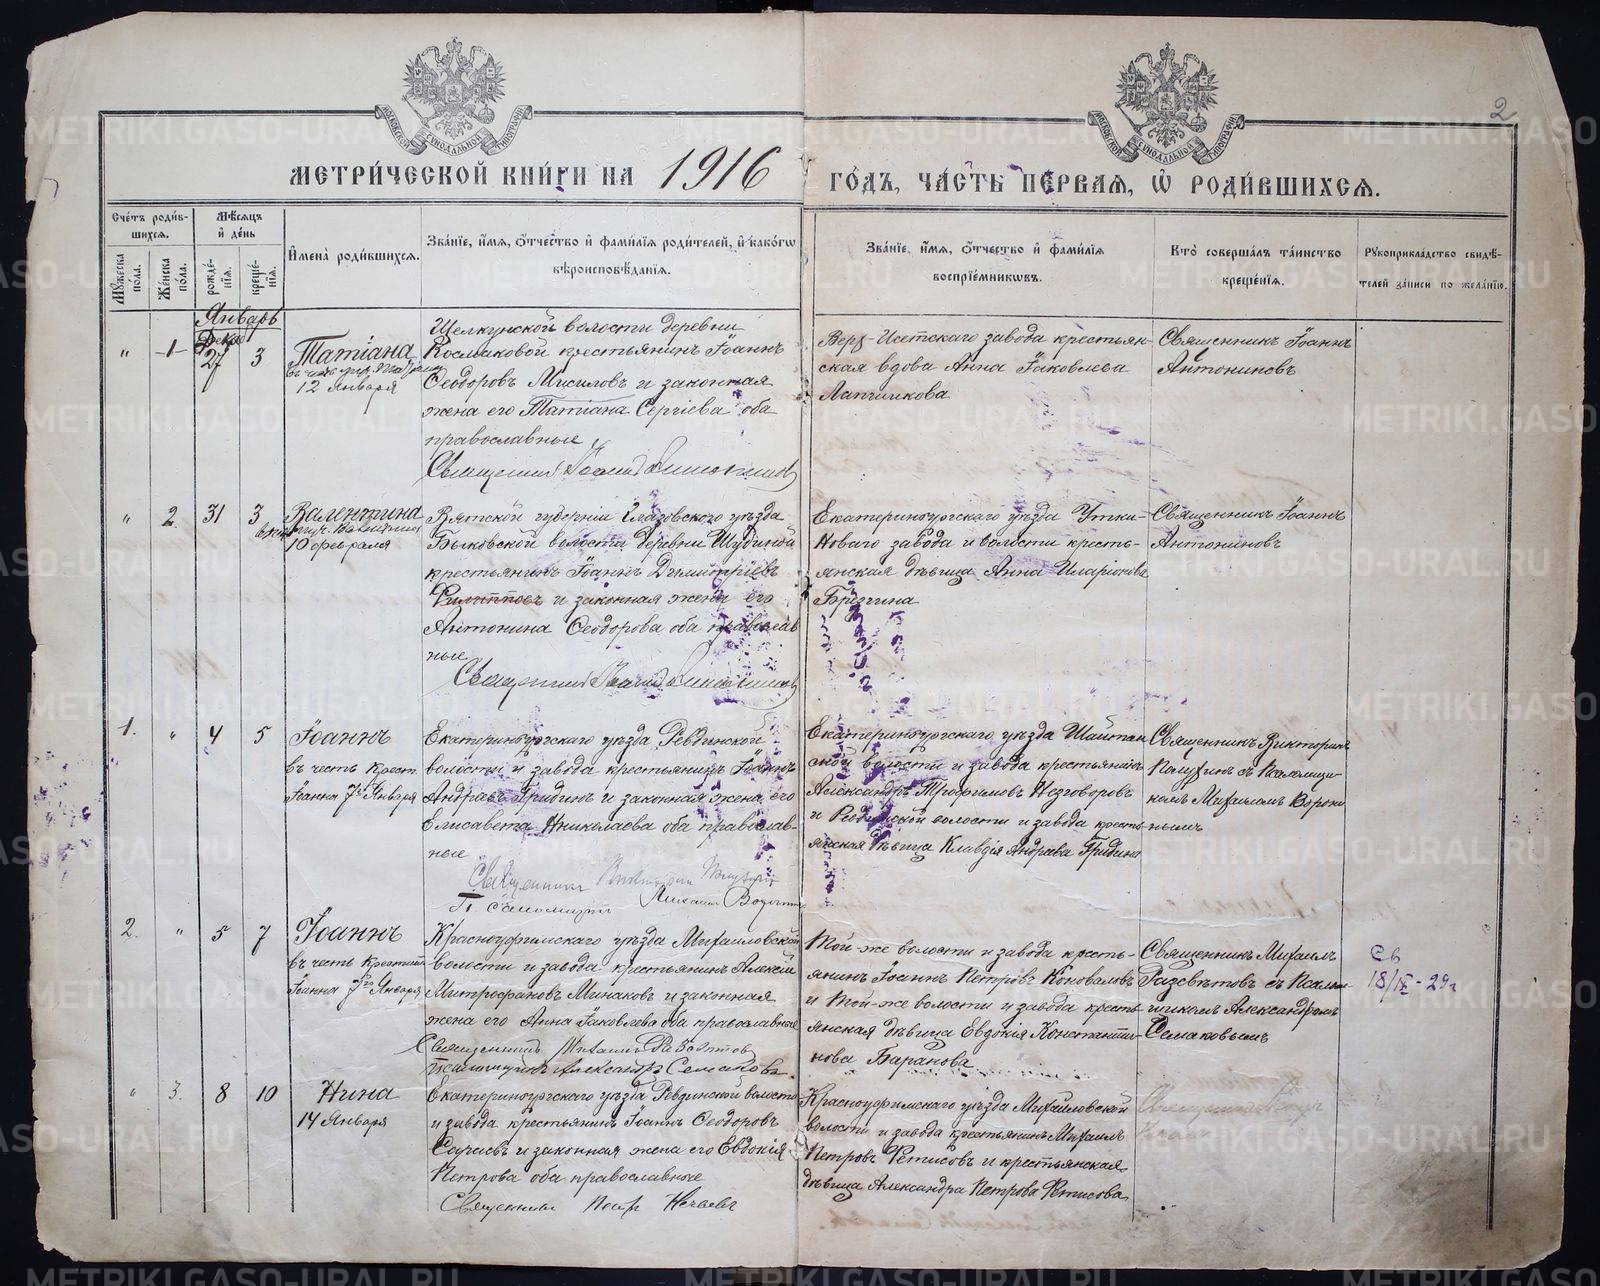 МОСКОВСКОЙ СѴНОДАЛЬНОЙ ТИПОГРАФІИ
МОСКОВСКОЙ СѴНОДАЛЬНОЙ ТИПОГРАФІИ
2
МЕТРИ́ЧЕСКОЙ КНИ́ГИ НА 1916 ГО́ДЪ, ЧА́СТЬ ПЕ́РВАЯ, Ѡ҆ РОДИ́ВШИХСЯ.
Сче́тъ роди́в-
шихся.
Мѣ́сяцъ
и҆ де́нь
Му́жеска по́ла.
Же́нска по́ла.
рожде́-
нія.
креще́-
нія.
И҆мена̀ роди́вшихся.
Зва́ніе, и҆́мя, ѻ҆́тчество и҆ фами́лія роди́телей, и҆ како́гѡ
вѣроисповѣ́данія.
Зва́ніе, и҆́мя, ѻ҆́тчество и҆ фами́лія
воспріе́мникѡвъ.
Кто̀ соверша́лъ та́инство
креще́нія.
Рꙋкоприкла́дство свидѣ́-
телей за́писи по жела́нію.
Январь
" 1 27 3
Татіана
12 Января
Щелкунской волости деревни
Космаковой крестьянинъ Іоаннъ
Ѳеодоровъ Мисиловъ и законная
жена его Татіана Сергіева оба
православные
Священникъ Іоаннъ Антониновъ
Верх-Исетскаго завода крестьян-
ская вдова Анна Іаковлева
Лапшикова
Священникъ Іоаннъ
Антониновъ
" 2. 31 3
Валентина
10 февраля
Вятской губерніи Глазовскаго уѣзда
Быковской волости деревни Шудиной
крестьянинъ Іоаннъ Димитріевъ
Филипповъ и законная жена его
Антонина Ѳеодорова оба православ
ные
Священникъ Іоаннъ Антониновъ
Екатеринбургскаго уѣзда Утки-
Новаго завода и волости кресть-
янская дѣвица Анна Иларіонова
Брягина
Священникъ Іоаннъ
Антониновъ
1. " 4 5
Іоаннъ
въ честь Крест.
Іоанна 7го Января
Екатеринбургскаго уѣзда Ревдинской
волости и завода крестьянинъ Іоаннъ
Андреевъ Гридинъ и законная жена его
Елисавета Николаева оба православ-
ные
Священникъ Викторинъ
Псаломщикъ Михаилъ
Екатеринбургскаго уѣзда Шайтан
ской волости и завода крестьянинъ
Александръ Трофимовъ Незговоровъ
и Ревдинской волости и завода кресть-
янская дѣвица Клавдія Андреева Гридина
Священникъ Викторинъ
съ Псаломщи-
комъ Михаиломъ Ворони
нымъ
2. " 5 7
Іоаннъ
въ честь Крестит.
Іоанна 7го Января
Красноуфимскаго уѣзда Михайловской
волости и завода крестьянинъ Алексій
Митрофановъ Минаковъ и законная
жена его Анна Іаковлева оба православные
Священникъ Михаилъ Разсвѣтовъ
Псаломщикъ Александръ Семаковъ.
Той-же волости и завода кресть-
янинъ Іоаннъ Петровъ Коноваловъ
и Той-же волости и завода кресть
янская дѣвица Евдокія Константи-
нова Баранова
Священникъ Михаилъ
Разсвѣтовъ съ Псалом-
щикомъ Александромъ
Семаковымъ
Св
18/IX-29г
" 3. 8 10
Нина
14 Января
Екатеринбургскаго уѣзда Ревдинской волости
и завода крестьянинъ Іоаннъ Ѳеодоровъ
Сочневъ и законная жена его Евдокія
Петрова оба православные
Священникъ Петръ Нечаевъ
Красноуфимскаго уѣзда Михайловской
волости и завода крестьянинъ Михаилъ
Петровъ Фетисовъ и крестьянская
дѣвица Александра Петрова Фетисова
METRIKI.GASO-URAL.RU